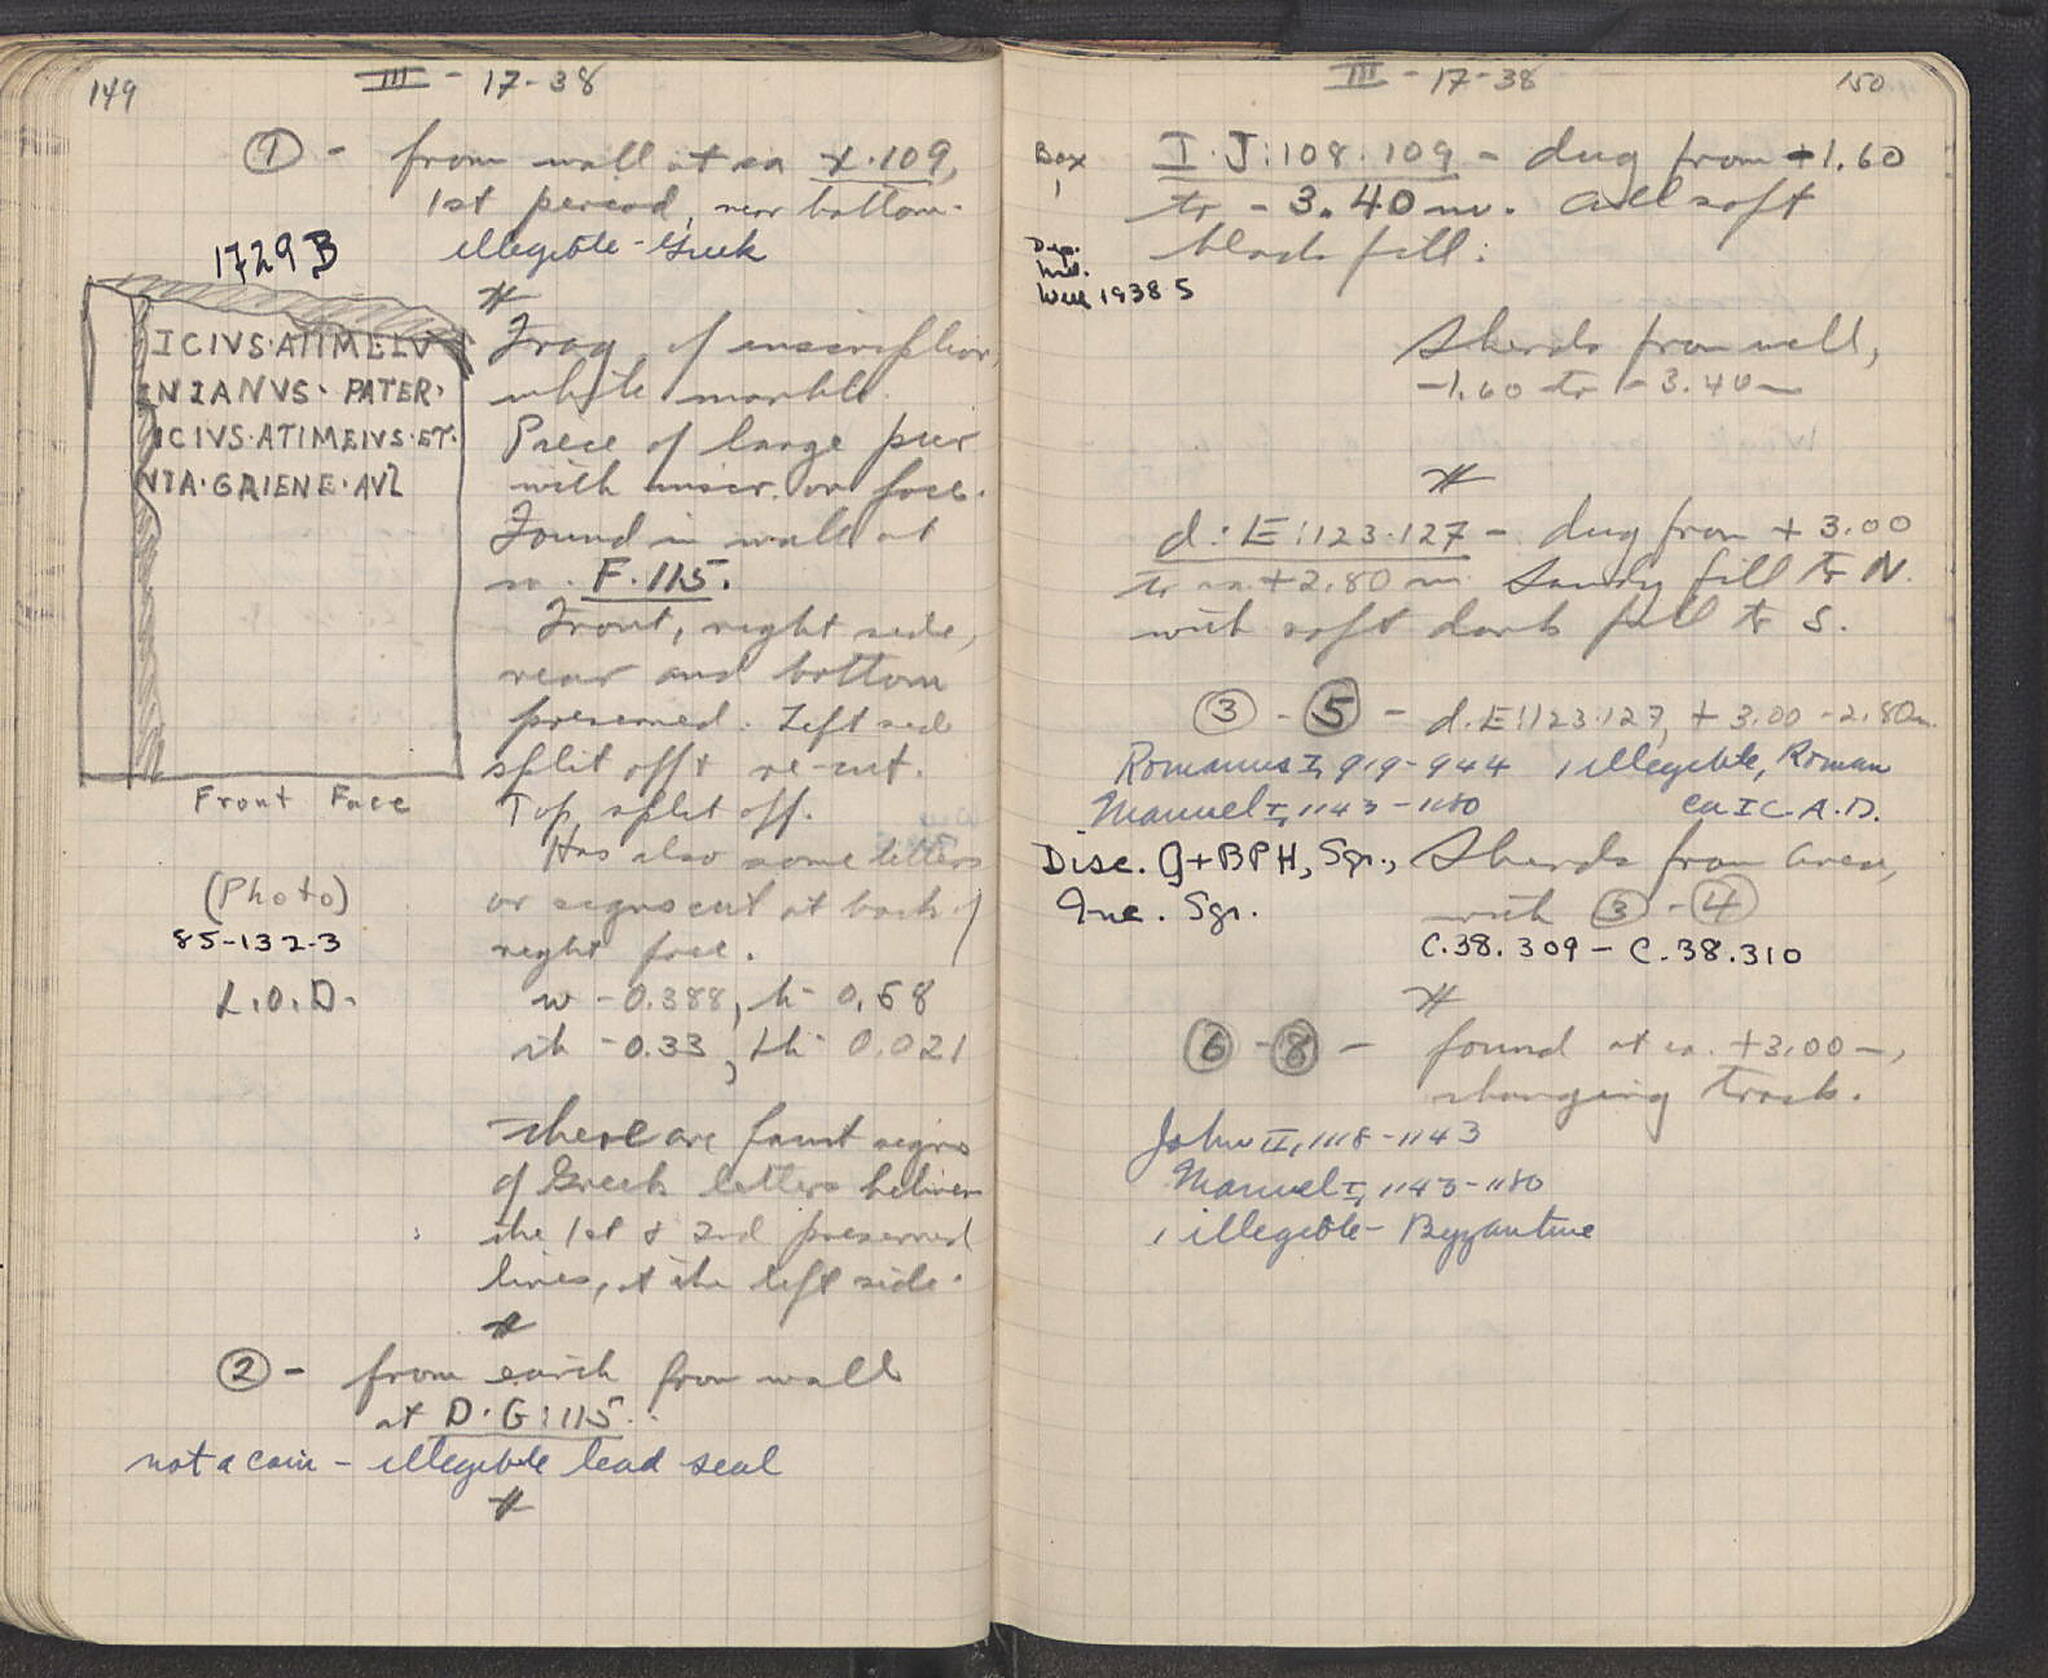 149
III - 17-38
① - from wall at ca X.109,
1st period, near bottom.
illegible - Greek
#
1729B
ICIVS·ATIMEIV
INIANVS· PATER·
ICIVS·ATIMEIVS·ET·
NIA·GRIENE·AVL
Front Face
(Photo)
85-132-3
L.O.D.
Frag. of inscription,
white marble.
Piece of large pier
with inscr. on face.
Found in wall at
ca. F.115.
Front, right side,
rear and bottom
preserved. Left side
split off & re-cut.
Top split off.
Has also some letters
or signs cut at back of
right face.
w - 0.388, h - 0.58
th - 0.33, lh - 0.021
There are faint signs
of Greek letters between
the 1st & 2nd preserved
lines, at the left side.
#
② - from earth from wall
at D·G:115.
not a coin - illegible lead seal
#
III - 17-38
150
Box
1
I·J:108·109 - dug from -1.60
to -3.40 m. All soft
black fill:
Dep.
Well 1938 5
Sherds from well,
-1.60 to -3.40 m
#
d·E:123·127 - dug from +3.00
to ca. +2.80 m. Sandy fill to N.
with soft dark fill to S.
③ - ⑤ - d.E:123:127, +3.00 - 2.80m.
Romanus I, 919-944 1 illegible, Roman
Manuel I, 1143-1180 ca I C. A.D.
Disc. G+BPH, Sgr., Sherds from area,
Inc. Sgr. with ③-④
C.38.309 - C.38.310
#
⑥ - ⑧ - found at ca. +3.00 m,
changing track.
John II, 1118-1143
Manuel I, 1143-1180
1 illegible - Byzantine